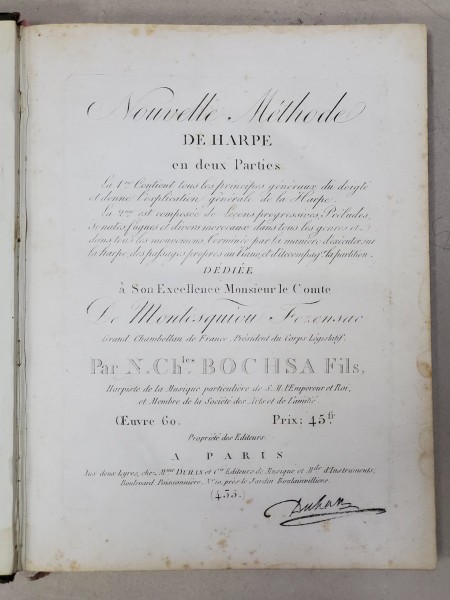 Nouvelle Méthode
DE HARPE
en deux Parties
La 1.ere Contient tous les principes généraux du doigté
et donne l'explication générale de la Harpe.
La 2.eme est composée de leçons progressives, Préludes,
Sonates, fugues et divers morceaux dans tous les genres et
dans tous les mouvemens Terminée par la manière d'exécuter sur
la harpe, des passages propres au Piano, et d'accompag.er la partition.
DÉDIÉE
à Son Excellence Monsieur le Comte
De Montesquiou Fezensac
Grand Chambellan de France, Président du Corps Législatif.
Par N. Ch.les BOCHSA Fils,
Harpiste de la Musique particulière de S. M. l'Empereur et Roi,
et Membre de la Société des Arts et de l'amitié.
Œuvre 60. Prix: 45.fr
Propriété des Editeurs.
A PARIS
Aux deux Lyres, chez M.me DUHAN et C.ie Editeurs de Musique et M.ds d'Instruments,
Boulevard Poissonnière, N.o 10, près le Jardin Boulainvilliers.
(455.)
Duhan